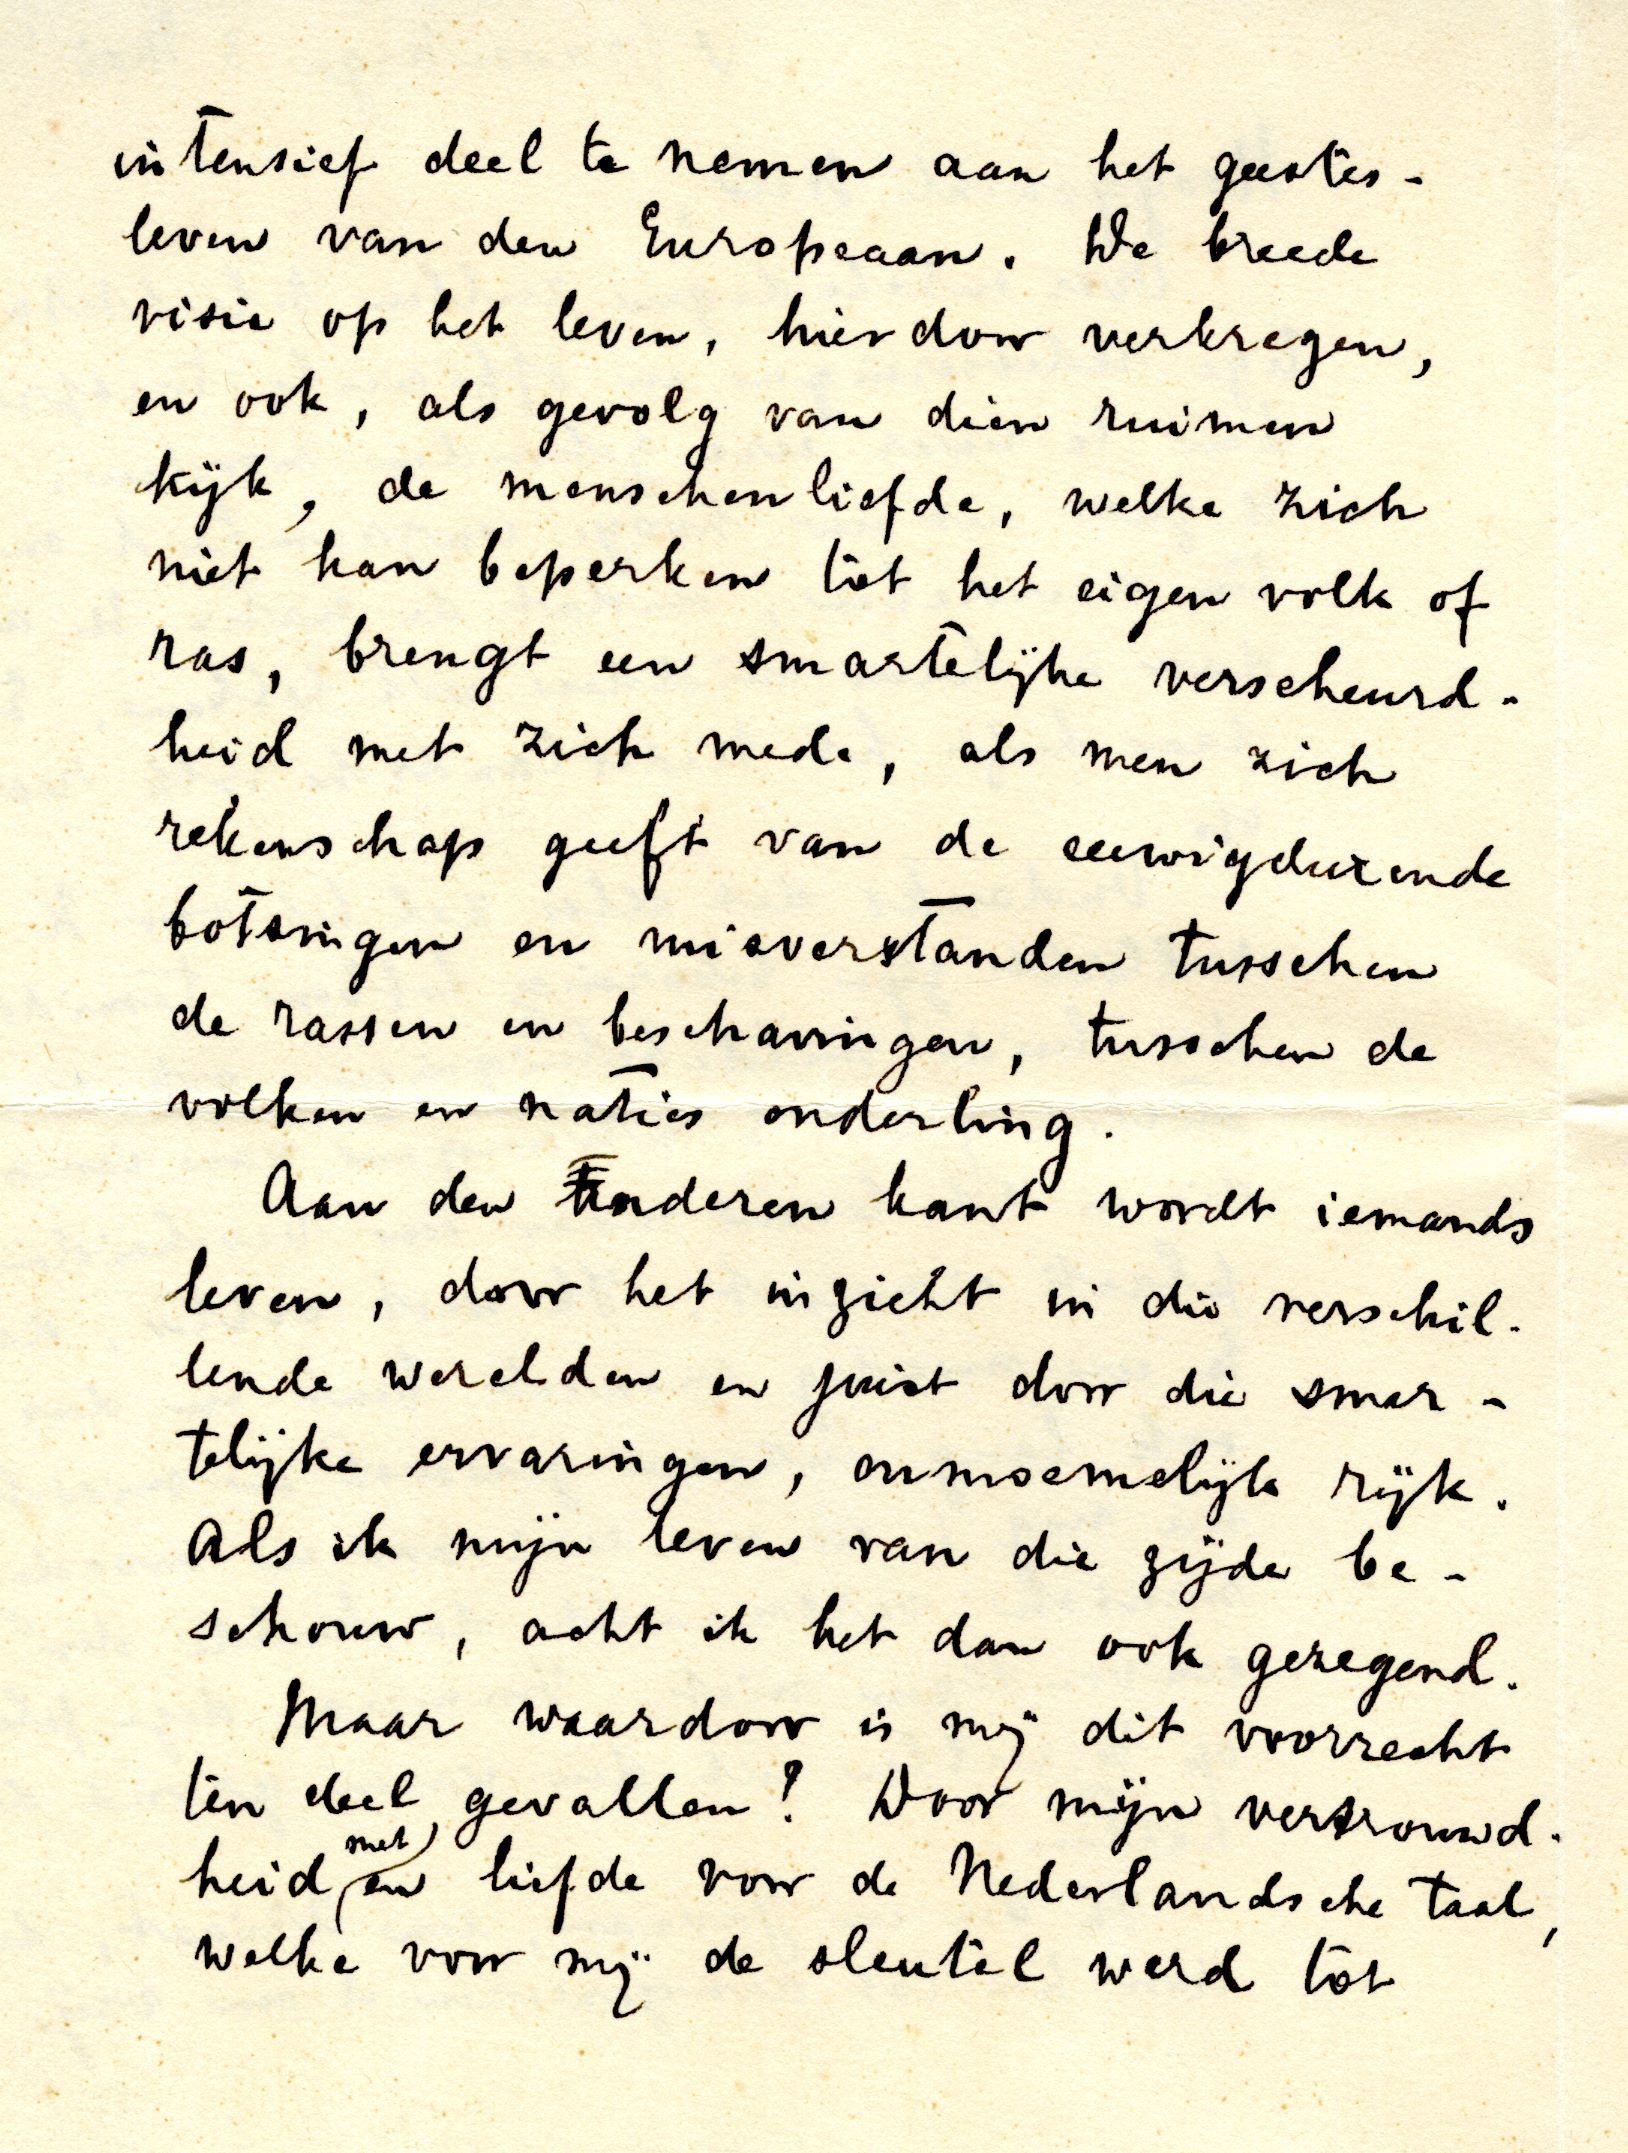 intensief deel te nemen aan het geestes-
leven van den Europeaan. De breede
visie op het leven, hierdoor verkregen,
en ook, als gevolg van dien ruimen
kijk, de menschenliefde, welke zich
niet kan beperken tot het eigen volk of
ras, brengt een smartelijke verscheurd-
heid met zich mede, als men zich
rekenschap geeft van de eeuwigdurende
botsingen en misverstanden tusschen
de rassen en beschavingen, tusschen de
volken en naties onderling.
Aan den anderen kant wordt iemands
leven, door het inzicht in die verschil-
lende werelden en juist door die smar-
telijke ervaringen, onnoemelijk rijk.
Als ik mijn leven van die zijde be-
schouw, acht ik het dan ook gezegend.
Maar waardoor is mij dit voorrecht
ten deel gevallen? Door mijn vertrouwd-
heid met en liefde voor de Nederlandsche taal,
welke voor mij de sleutel werd tot